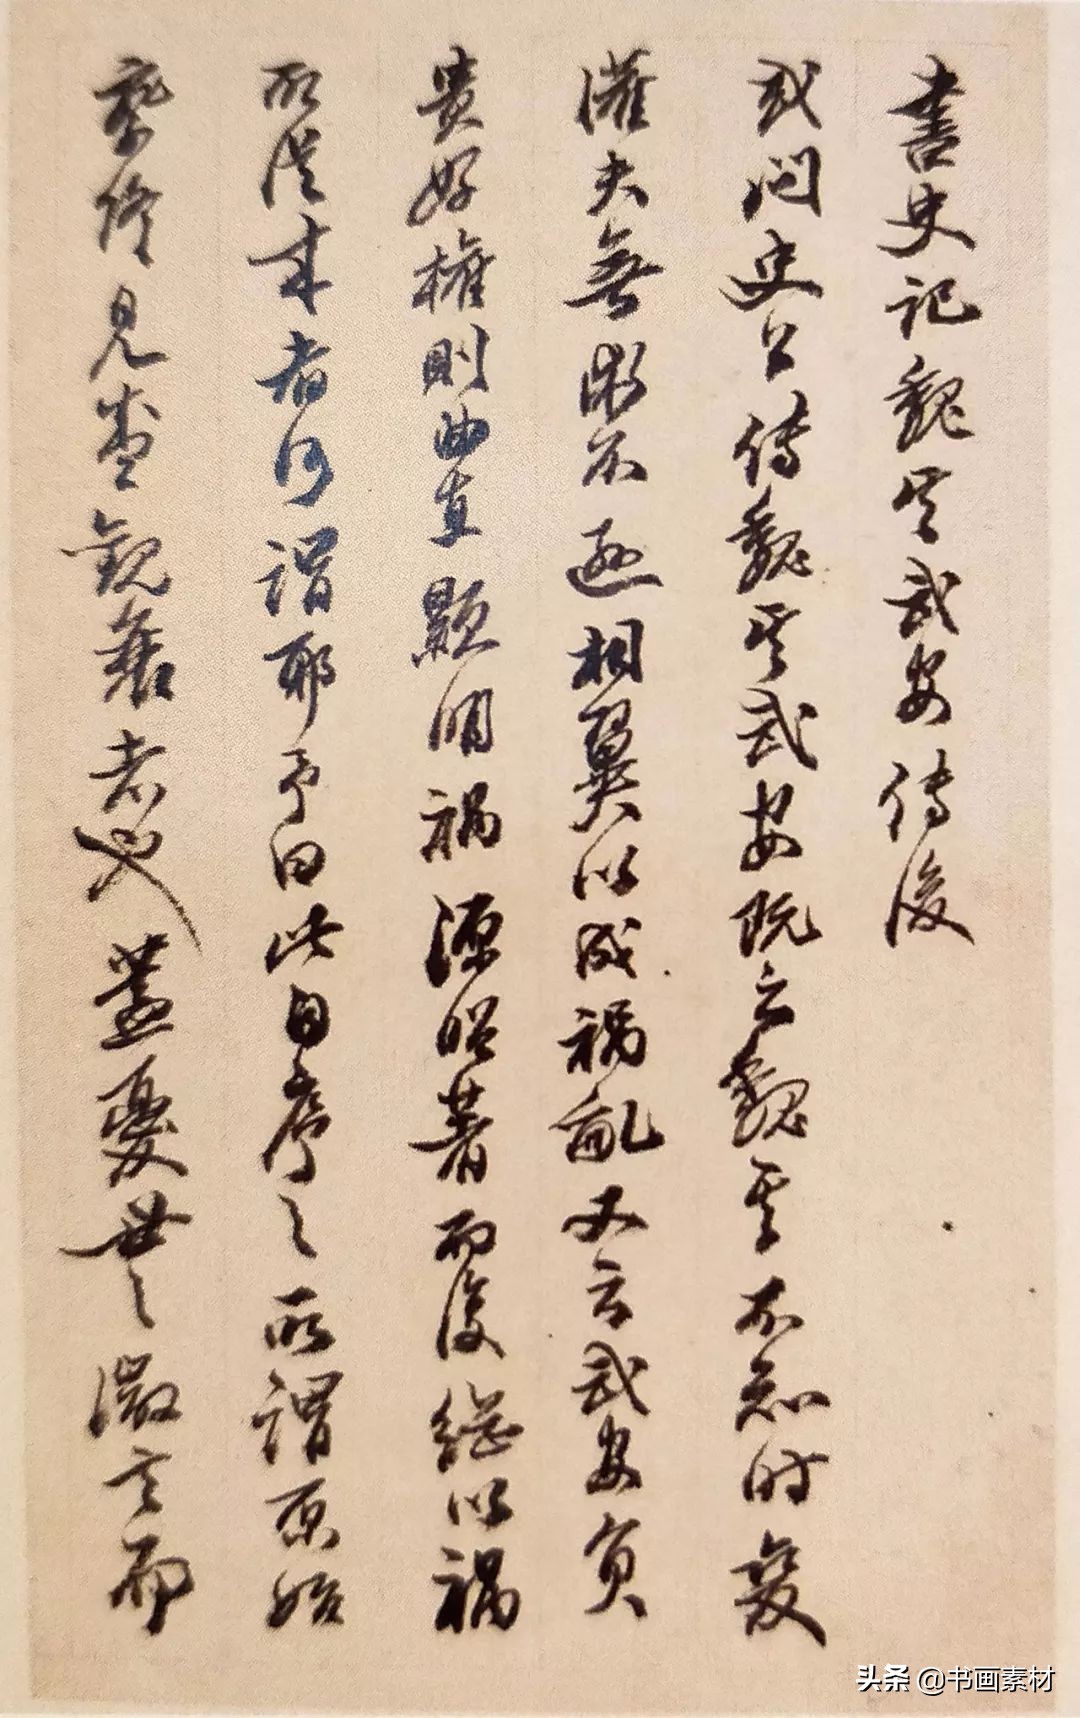 書史記魏其武安傳後
或問史公傳魏其武安既云魏其不知時變
灌夫無術不遜相翼以成禍亂又云武安負
貴好權則曲直顯明禍源昭著而後繼以禍
所從來者何謂耶予曰此自序之所謂原始
察終見盛觀衰者也蓋憂世之微言而
头条 @书画素材